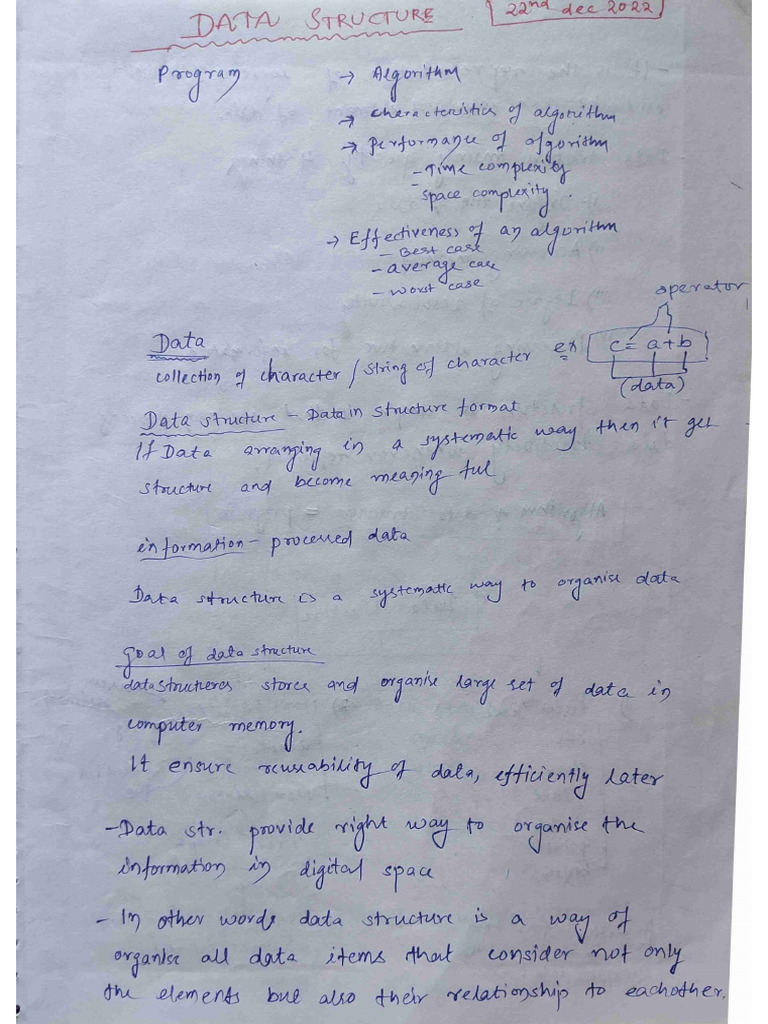 DATA STRUCTURE 22nd dec 2022
Program → Algorithm
→ characteristics of algorithm
→ Performance of algorithm
- Time complexity
space complexity.
→ Effectiveness of an algorithm
- Best case
- average case
- worst case
operator
Data
collection of character / string of character ex c = a+b
(data)
Data structure - Data in structure format
If Data arranging in a systematic way then it get
structure and become meaning ful
information - processed data
Data structure is a systematic way to organise data
Goal of data structure
data structures store and organise large set of data in
computer memory.
It ensure reusability of data, efficiently later
- Data str. provide right way to organise the
information in digital space
- In other words data structure is a way of
organise all data items that consider not only
the elements but also their relationship to eachother.